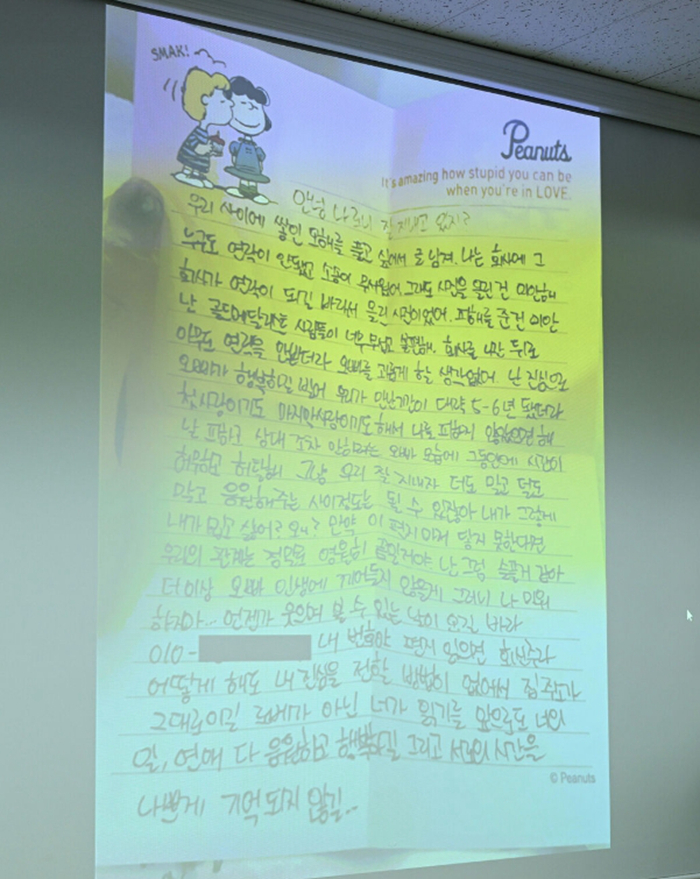 SMAK!
Peanuts
It's amazing how stupid you can be
when you're in LOVE.
안녕 나 잘 지내고 있지?
우리 사이에 쌓인 오해를 풀고 싶어서 글 남겨. 나는 회사에 그
누구도 연락이 안됐고 소송이 무서웠어. 그래도 사진을 올린건 미안해
회사가 연락이 되길 바라서 올린 사진이었어. 피해를 준건 미안
난 골드메달리스트 사람들이 너무 무섭고 회사를 나간 뒤로
아무도 연락을 안받더라 오빠를 할 생각없어. 난 진심으로
오빠가 행복하길 빌어 우리가 만난기간이 대략 5-6년 됐더라
첫사랑이기도 마지막사랑이기도 해서 나를 피하지 않았으면 해
날 피하고 상대 조차 안하려는 오빠 모습에 그동안에 시간이
허무하고 허탈해 그냥 우리 잘 지내자 더도 말고 덜도
말고 응원해주는 사이정도는 될 수 있잖아 내가 그렇게
내가 밉고 싫어? 왜? 만약 이 편지마저 닿지 못한다면
우리의 관계는 정말로 영원히 끝일거야 난 그럼 슬플거 같아
더이상 오빠 인생에 끼어들지 않을게 그러니 나 미워
하지마... 언젠가 웃으며 볼 수 있는 날이 오길 바라
010- 내 번호야 편지 읽으면 회신줘라
어떻게 해도 내 진심을 전할 방법이 없어서 집 주소가
그대로이길 로배가 아닌 너가 읽기를 앞으로도 너의
일, 연애 다 응원하고 행복하길 그리고 서로의 시간을
나쁘게 기억되지 않길..
© Peanuts